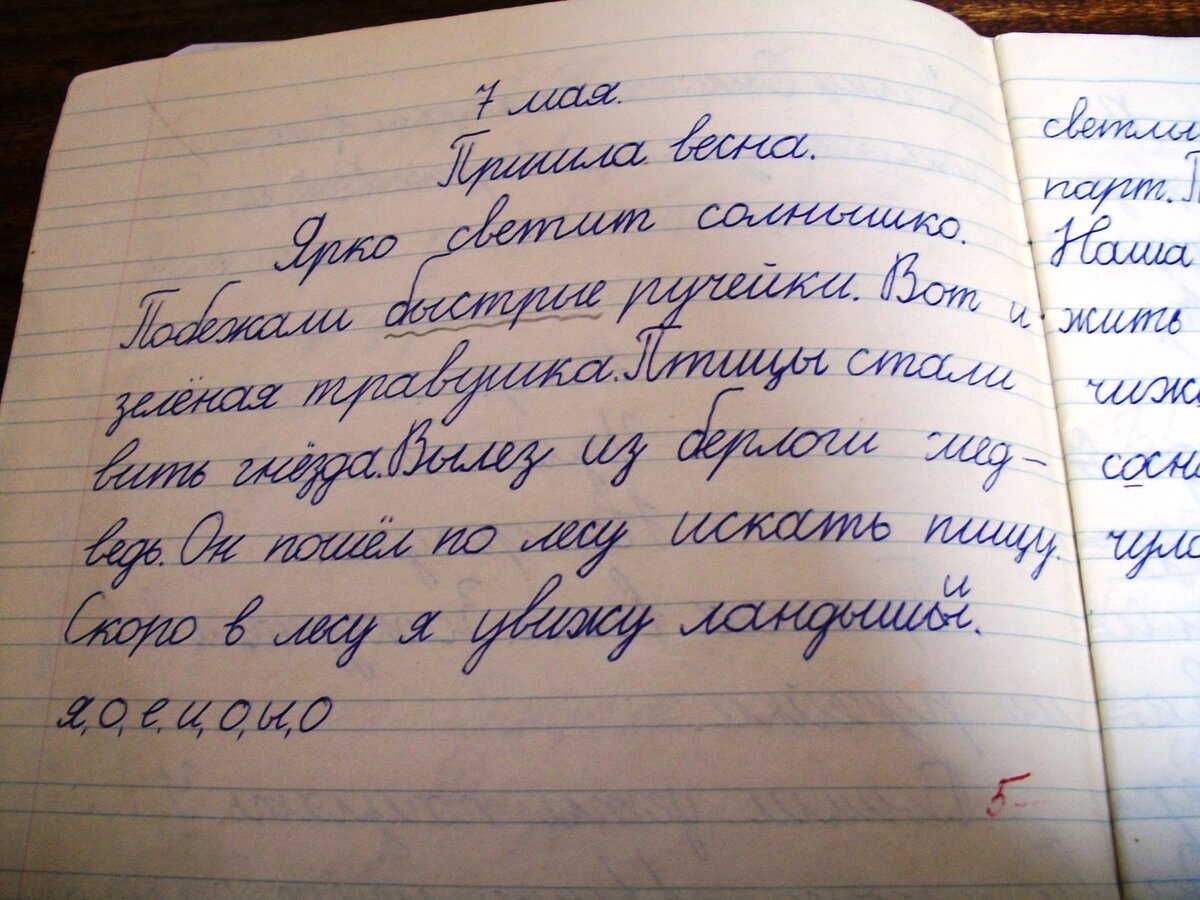 7 мая.
Пришла весна.
Ярко светит солнышко.
Побежали быстрые ручейки. Вот и
зелёная травушка. Птицы стали
вить гнёзда. Вылез из берлоги мед-
ведь. Он пошёл по лесу искать пищу.
Скоро в лесу я увижу ландыши.
я, о, е, и, о, ы, о
5-
парт.
Наша
жить